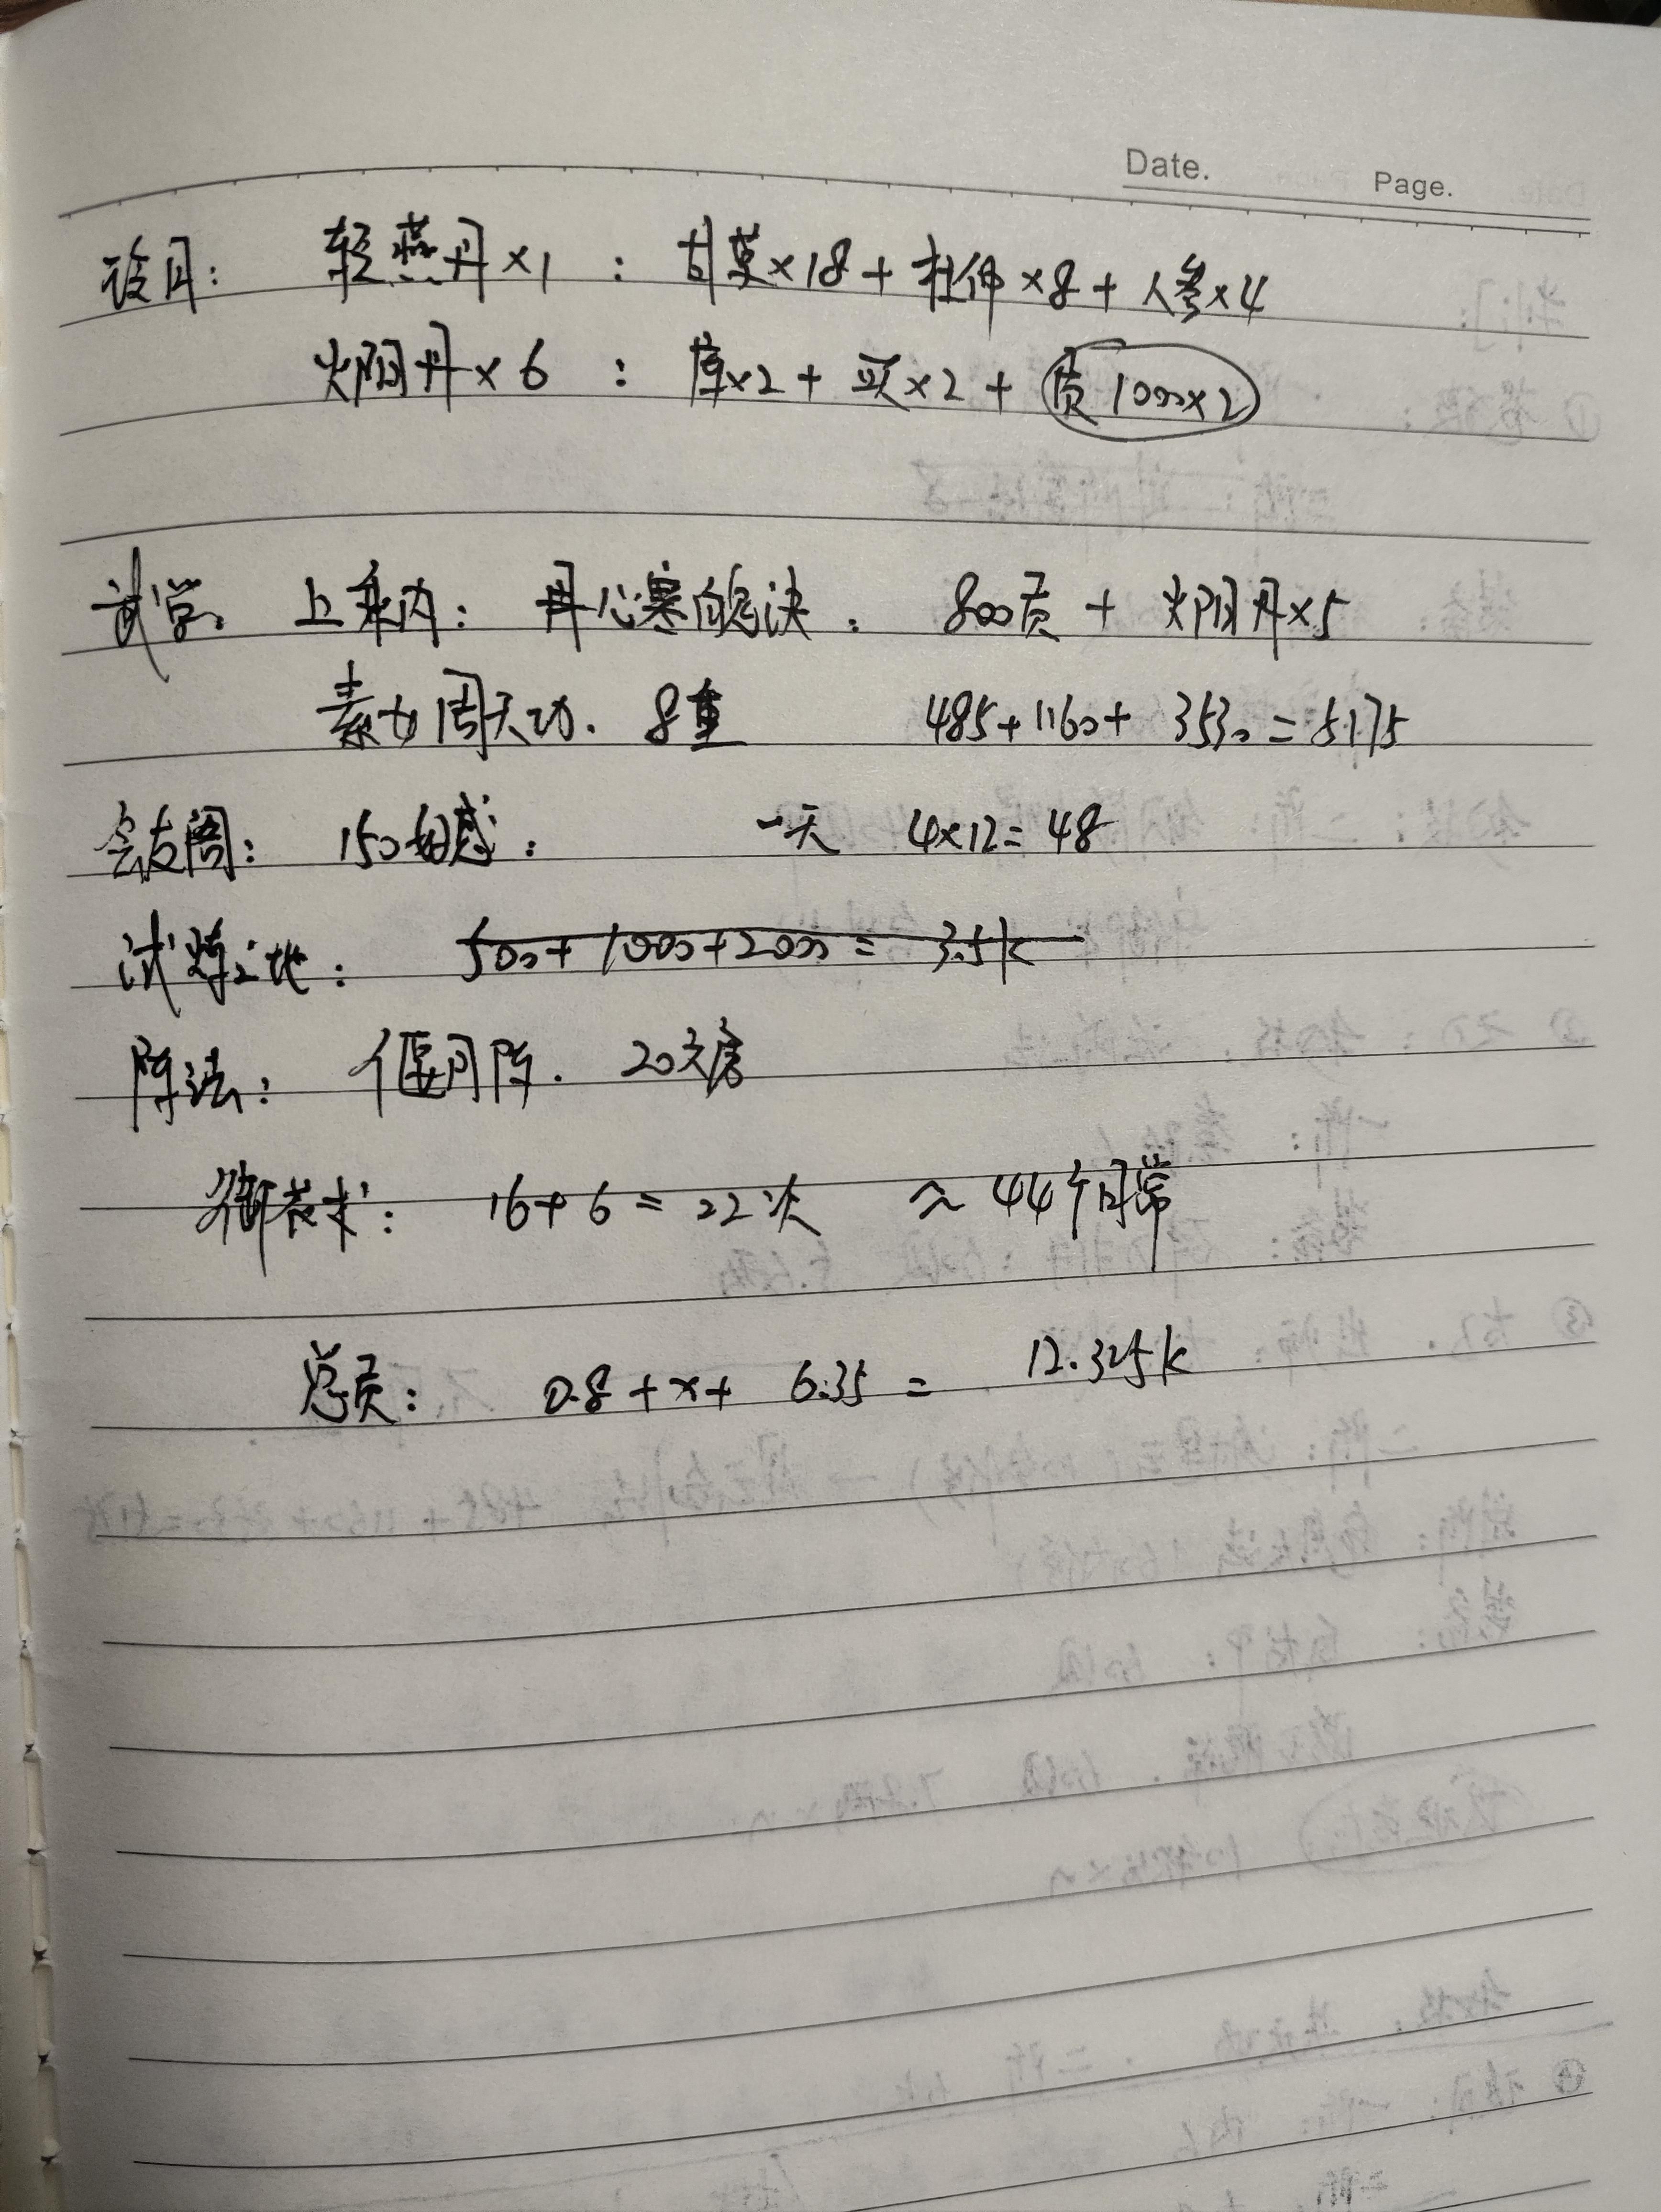 Date. Page.
设月: 轻燕丹×1 : 甘草×18 + 杜仲×8 + 人参×4
火阳丹×6 : 库×2 + 买×2 + 贡1000×2
武学. 上乘内: 丹心寒魄决. 800贡 + 火阴丹×5
素女周天功. 8重 485+1160+ 3530 = 5175
会友阁: 150好感: 一天 4×12=48
试炼之地: 500+1000+2000 = 3.5k
阵法: 偃月阵. 20交房
御兽术: 16+6 = 22次 ≈ 44个日常
总贡: 0.8+x+ 6.35 = 12.325k